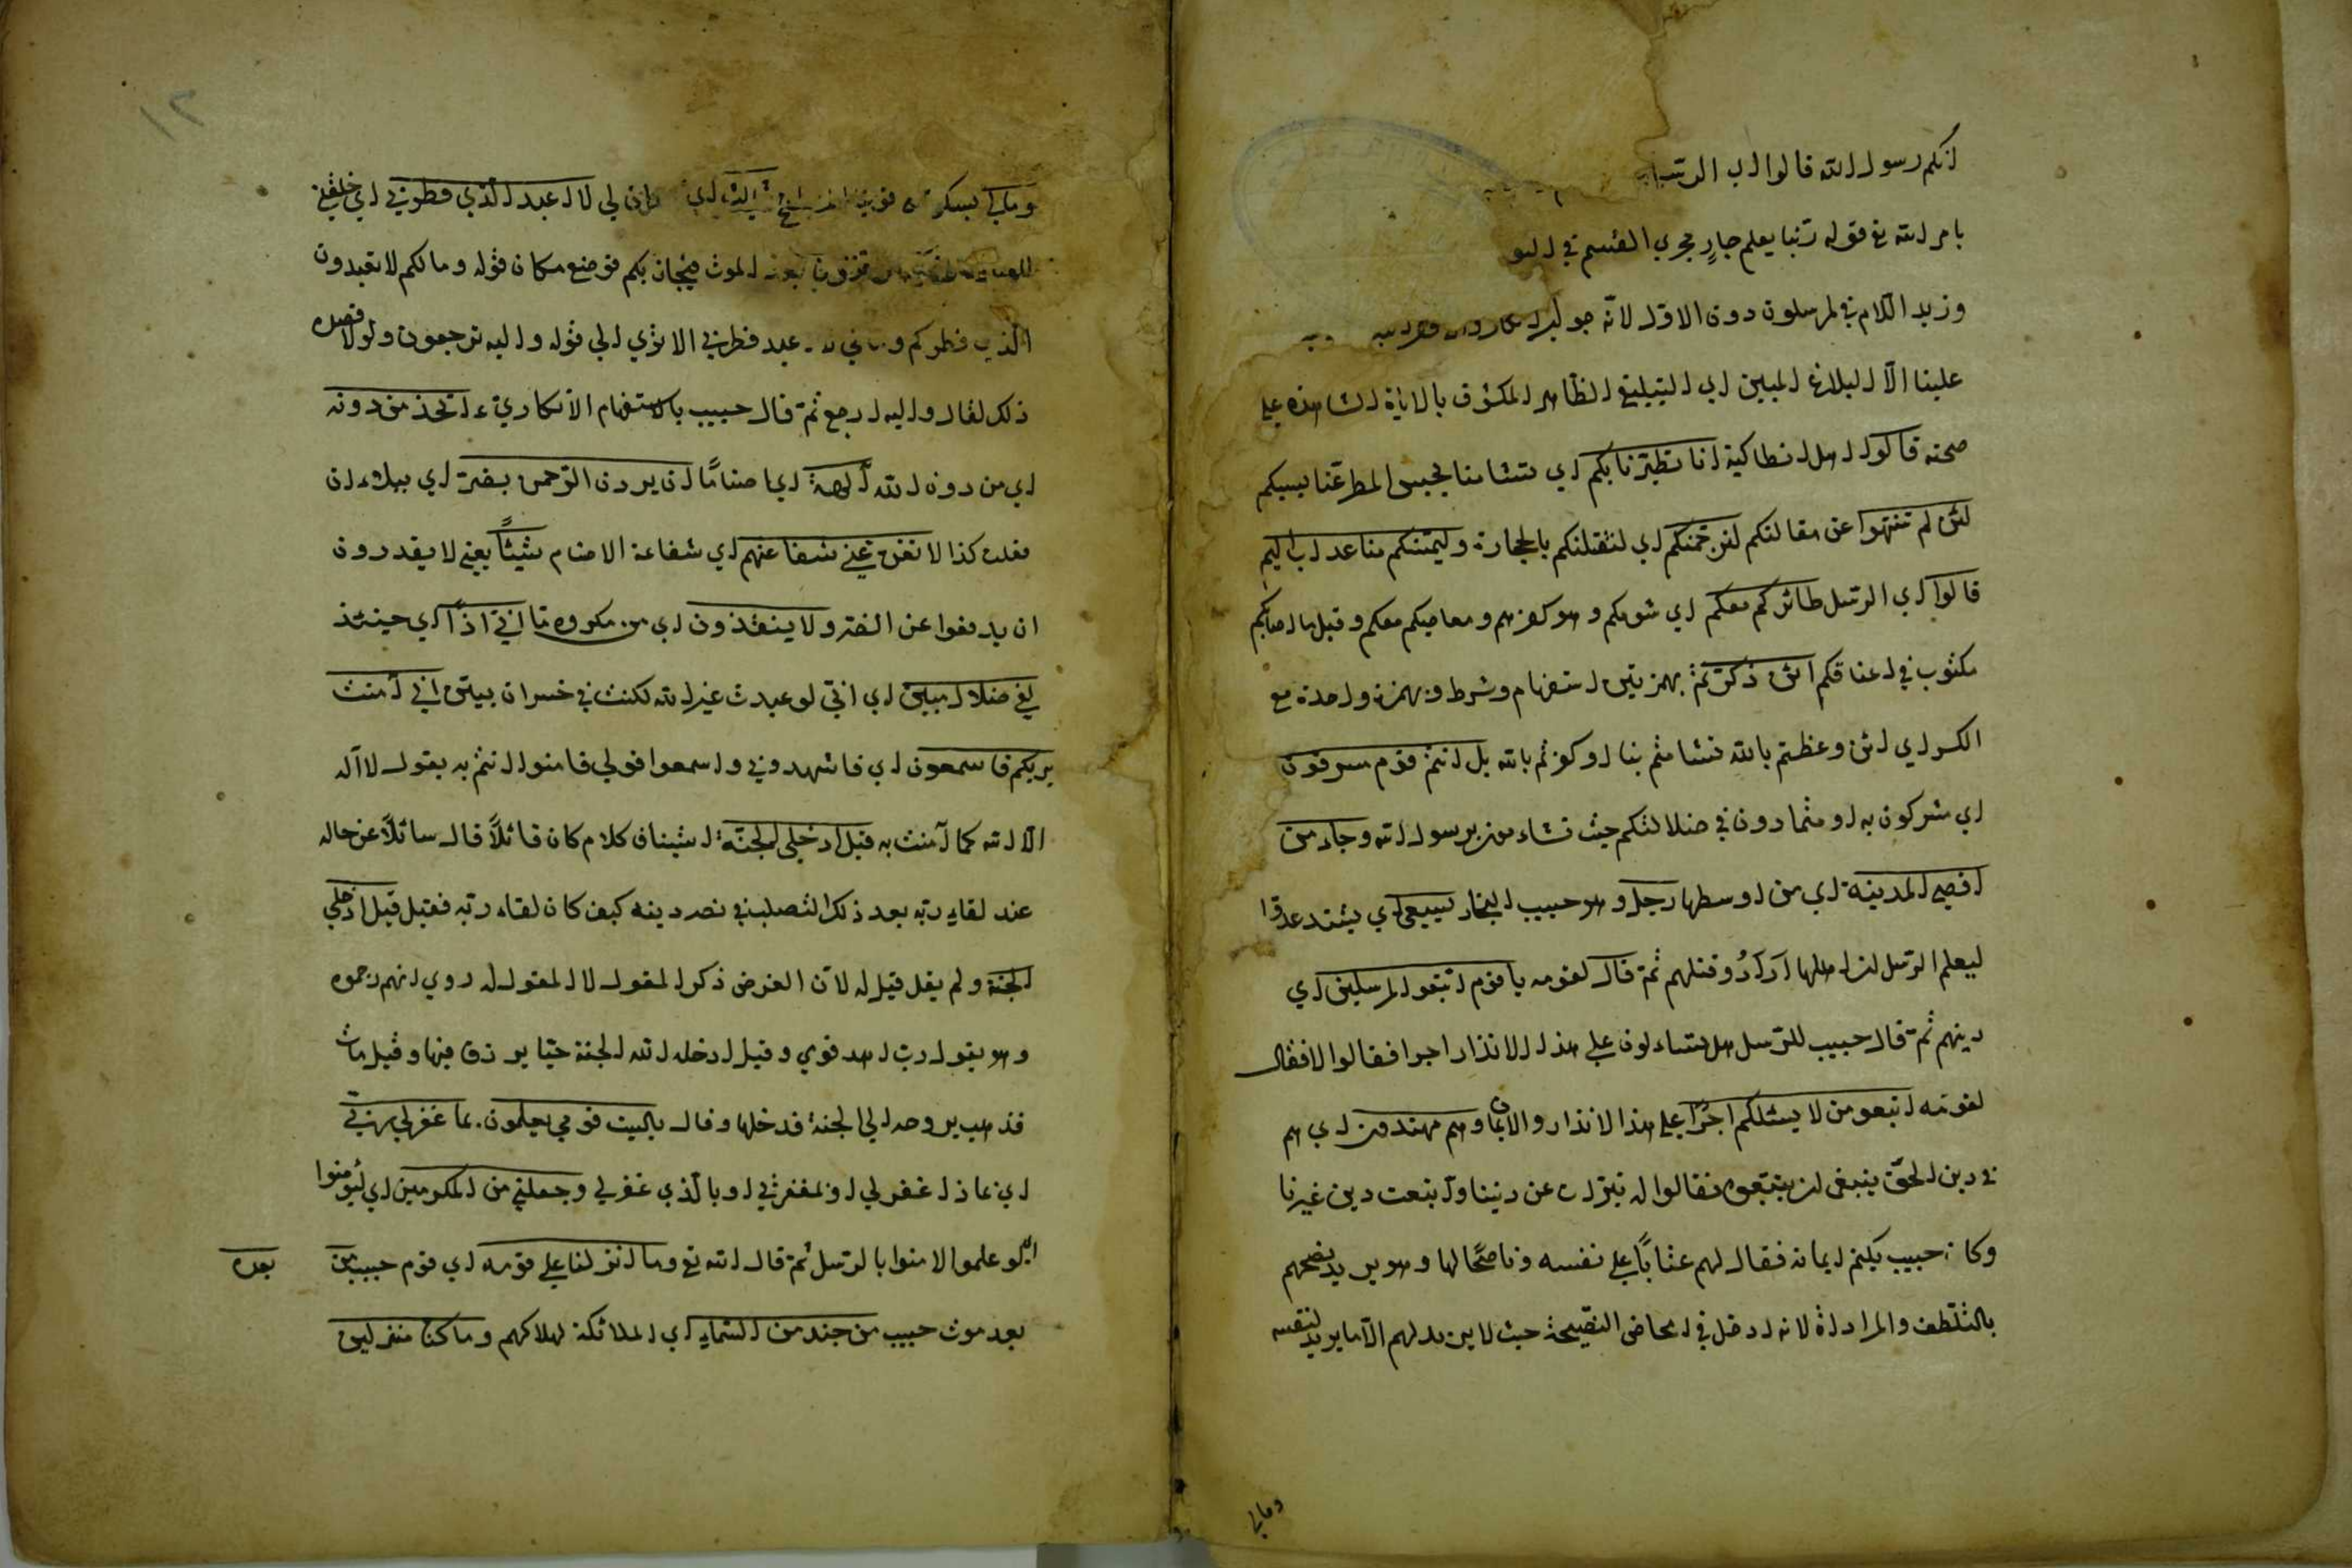 انكم رسول الله قالوا اي الرسل
بامر الله تع قوله ربنا يعلم جارٍ مجري القسم في
وزيد اللام في لمرسلون دون الاول لانه جواب
علينا الا البلاغ المبين اي التبليغ الظاهر المكشوف بالاياة الشاهدة علي
صحته قالوا اهل انطاكية انا تطيرنا بكم اي تشامنا بحبس المطر عنا بسببكم
لئن لم تنتهوا عن مقالتكم لنرجمنكم اي لنقتلنكم بالحجارة وليمسنكم منا عذاب اليم
قالوا اي الرسل طائركم معكم اي شومكم وهو كفرهم ومعاصيكم معكم وقيل ما اصابكم
مكتوب في اعناقكم ائن ذكرتم بهمزتين استفهام وشرط وبهمزة واحدة مع
الكسر اي ائن وعظتم بالله تشامتم بنا او كفرتم بالله بل انتم قوم مسرفون
اي مشركون به او متمادون في ضلالتكم حيث تشاءمون برسول الله وجاء من
اقصي المدينة اي من اوسطها رجل وهو حبيب النجار يسعي اي يشتد عدوا
ليعلم الرسل ان اهلها ارادُوا قتلهم ثم قال لقومه يا قوم اتبعوا المرسلين اي
دينهم ثم قال حبيب للرسل هل تساءلون علي هذا الانذار اجرا فقالوا لا فقال
لقومه اتبعو من لا يسئلكم اجرًا علي هذا الانذار والايمان وهم مهتدون اي هم
في دين الحق ينبغي ان يتبعون فقالوا له تبرات عن ديننا واتبعت دين غيرنا
وكان حبيب يكتم ايمانه فقال لهم عتابًا علي نفسه وناصحًا لها وهو يريد نصحهم
بالتلطف والمراداة لانه ادخل في امحاض النصيحة حيث لا يريد لهم الا ما يريد لنفسه
ومالي
١٢
ومالي فان لي لا اعبد الذي فطرني اي خلقني
الموت فيجازيكم فوضع مكان قوله وما لكم لا تعبدون
الذي فطركم اعبد فطرني الا تري الي قوله واليه ترجعون ولولا قصده
ذلك لقال واليه ارجع ثم قال حبيب بالاستفهام الانكاري ءاتخذ من دونه
اي من دون الله الهة اي اصنامًا ان يردن الرحمن بضر اي ببلاء ان
فعلت كذا لا تغن عني شفاعتهم اي شفاعة الاصنام شيئًا يعني لا يقدرون
ان يدفعوا عن الضر ولا ينقذون اي من مكروه ما اني اذًا اي حينئذ
لفي ضلال مبين اي اني لو عبدت غير الله لكنت في خسران بين اني امنت
بربكم فاسمعون اي فاشهدوني واسمعوا قولي فامنوا انتم به بقول لا اله
الا الله كما آمنت به قيل ادخل الجنة استيناف كلام كان قائلًا قال سائلًا عن حاله
عند لقاء ربه بعد ذلك التصلب في نصر دينه كيف كان لقاء ربه فقيل قيل ادخل
الجنة ولم يقل قيل له لان الغرض ذكر المقول لا المقول له روي انهم رجموه
وهو يقول رب اهد قومي وقيل ادخله الله الجنة حيا يرزق فيها وقيل مات
فذهب بروحه الي الجنة فدخلها وقال ياليت قومي يعلمون. بما غفر لي ربي
اي بما ذا غفر لي او بمغفرتي او بالذي غفر لي وجعلني من المكرمين اي ليؤمنوا
اي لو علموا لامنوا بالرسل ثم قال الله تع وما انزلنا علي قومه اي قوم حبيب من
بعده
بعد موت حبيب من جند من السماء اي الملائكة لهلاكهم وما كنا منزلين